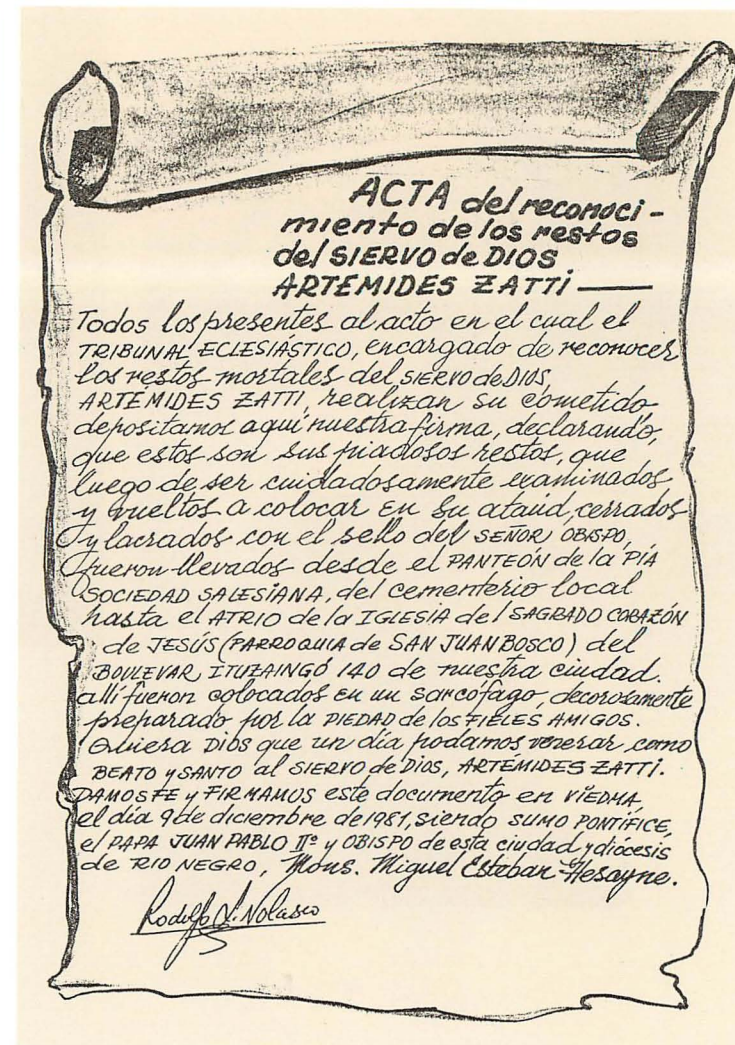 ACTA del reconoci-
miento de los restos
del SIERVO de DIOS
ARTEMIDES ZATTI
Todos los presentes al acto en el cual el
TRIBUNAL ECLESIÁSTICO, encargado de reconocer
los restos mortales del SIERVO de DIOS
ARTEMIDES ZATTI, realizan su cometido
depositamos aquí nuestra firma, declarando,
que estos son sus piadosos restos, que
luego de ser cuidadosamente examinados
y vueltos a colocar en su ataúd, cerrados
y lacrados con el sello del SEÑOR OBISPO,
fueron llevados desde el PANTEÓN de la PÍA
SOCIEDAD SALESIANA, del cementerio local
hasta el ATRIO de la IGLESIA del SAGRADO CORAZÓN
de JESÚS (PARROQUIA de SAN JUAN BOSCO) del
BOULEVAR ITUZAINGÓ 140 de nuestra ciudad.
allí fueron colocados en un sarcófago, decorosamente
preparado por la PIEDAD de los FIELES AMIGOS.
Quiera Dios que un día podamos venerar como
BEATO y SANTO al SIERVO de Dios, ARTEMIDES ZATTI.
DAMOS FE y FIRMAMOS este documento en VIEDMA,
el día 9 de diciembre de 1981, siendo SUMO PONTÍFICE,
el PAPA JUAN PABLO IIº y OBISPO de esta ciudad y diócesis
de RIO NEGRO, Mons. Miguel Esteban Hesayne.
Rodolfo L. Nolasco